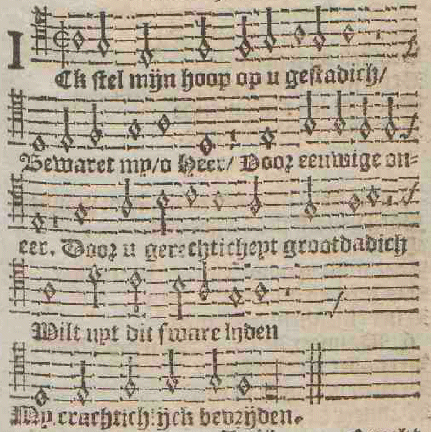 ICk stel mijn hoop op u gestadich/
Bewaret my/o Heer/ Door eeuwige on-
eer. Door u gerechticheyt grootdadich
Wilt uyt dit sware lyden
My crachtich:ijck bevrijden.